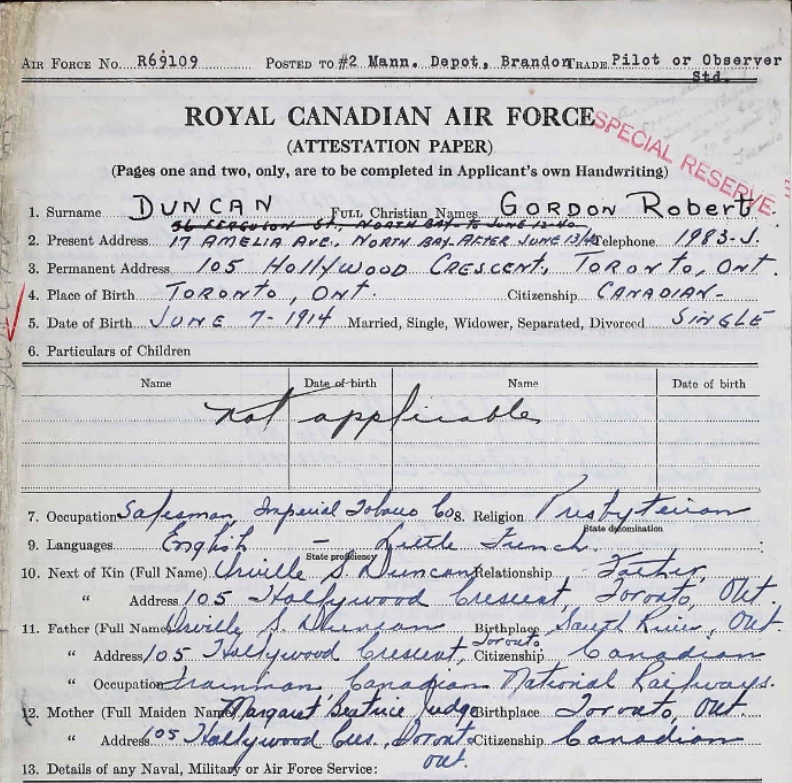 AIR FORCE No. R69109 POSTED TO #2 Mann. Depot, Brandon TRADE Pilot or Observer
Std.
ROYAL CANADIAN AIR FORCE
SPECIAL RESERVE
(ATTESTATION PAPER)
(Pages one and two, only, are to be completed in Applicant's own Handwriting)
1. Surname DUNCAN FULL Christian Names GORDON Robert
56 FERGUSON ST., NORTH BAY - TO JUNE 12-40
2. Present Address 17 AMELIA AVE., NORTH BAY. AFTER JUNE 13/40 Telephone 1983-J.
3. Permanent Address 105 HOLLYWOOD CRESCENT, TORONTO, ONT.
4. Place of Birth TORONTO, ONT. Citizenship CANADIAN-
5. Date of Birth JUNE 7-1914 Married, Single, Widower, Separated, Divorced SINGLE
6. Particulars of Children
Name Date of birth Name Date of birth
not applicable
7. Occupation Salesman, Imperial Tobacco Co 8. Religion Presbyterian
State denomination
9. Languages English - Little French.
State proficiency
10. Next of Kin (Full Name) Orville S. Duncan Relationship Father,
" Address 105 Hollywood Crescent, Toronto, Ont.
11. Father (Full Name) Orville S. Duncan Birthplace South River, Ont.
" Address 105 Hollywood Crescent, Toronto. Citizenship Canadian
" Occupation Trainman Canadian National Railways.
12. Mother (Full Maiden Name) Margaret Beatrice Judge Birthplace Toronto, Ont.
" Address 105 Hollywood Cres., Toronto Citizenship Canadian
Ont.
13. Details of any Naval, Military or Air Force Service: